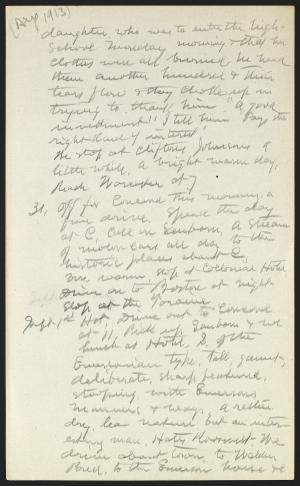 (Aug 1913)
daughter who was to enter the High-
School Tuesday morning & that her
clothes were all burned he had
them another hundred & their
tears flow & they choke up in
trying to thank him "A good
investment" I tell him "Pays the
right kind of interest"
We stop at Clifton Johnsons a
little while, A bright warm day,
Reach Worcester at 7
31, Off for Concord this morning, a
fine drive. Spend the day
at C, Call on Sanborn, A stream
of motor cars all day to the
historic places about C,
warm, stop at Colonial Hotel
Drive on to Boston at night
Stop at the Touraine
Sept. 1st Hot, Drive out to Concord
at 11, Pick up Sanborn & we
lunch at Hotel, S. of the
Emersonian type, tall, gaunt,
deliberate, sharp featured,
stooping, with Emersons
manners & ways, a rather
dry, lean nature but an inter-
esting man, Hates Roosevelt. We
drive about town, to Walden
Pond, to the Emerson house &c